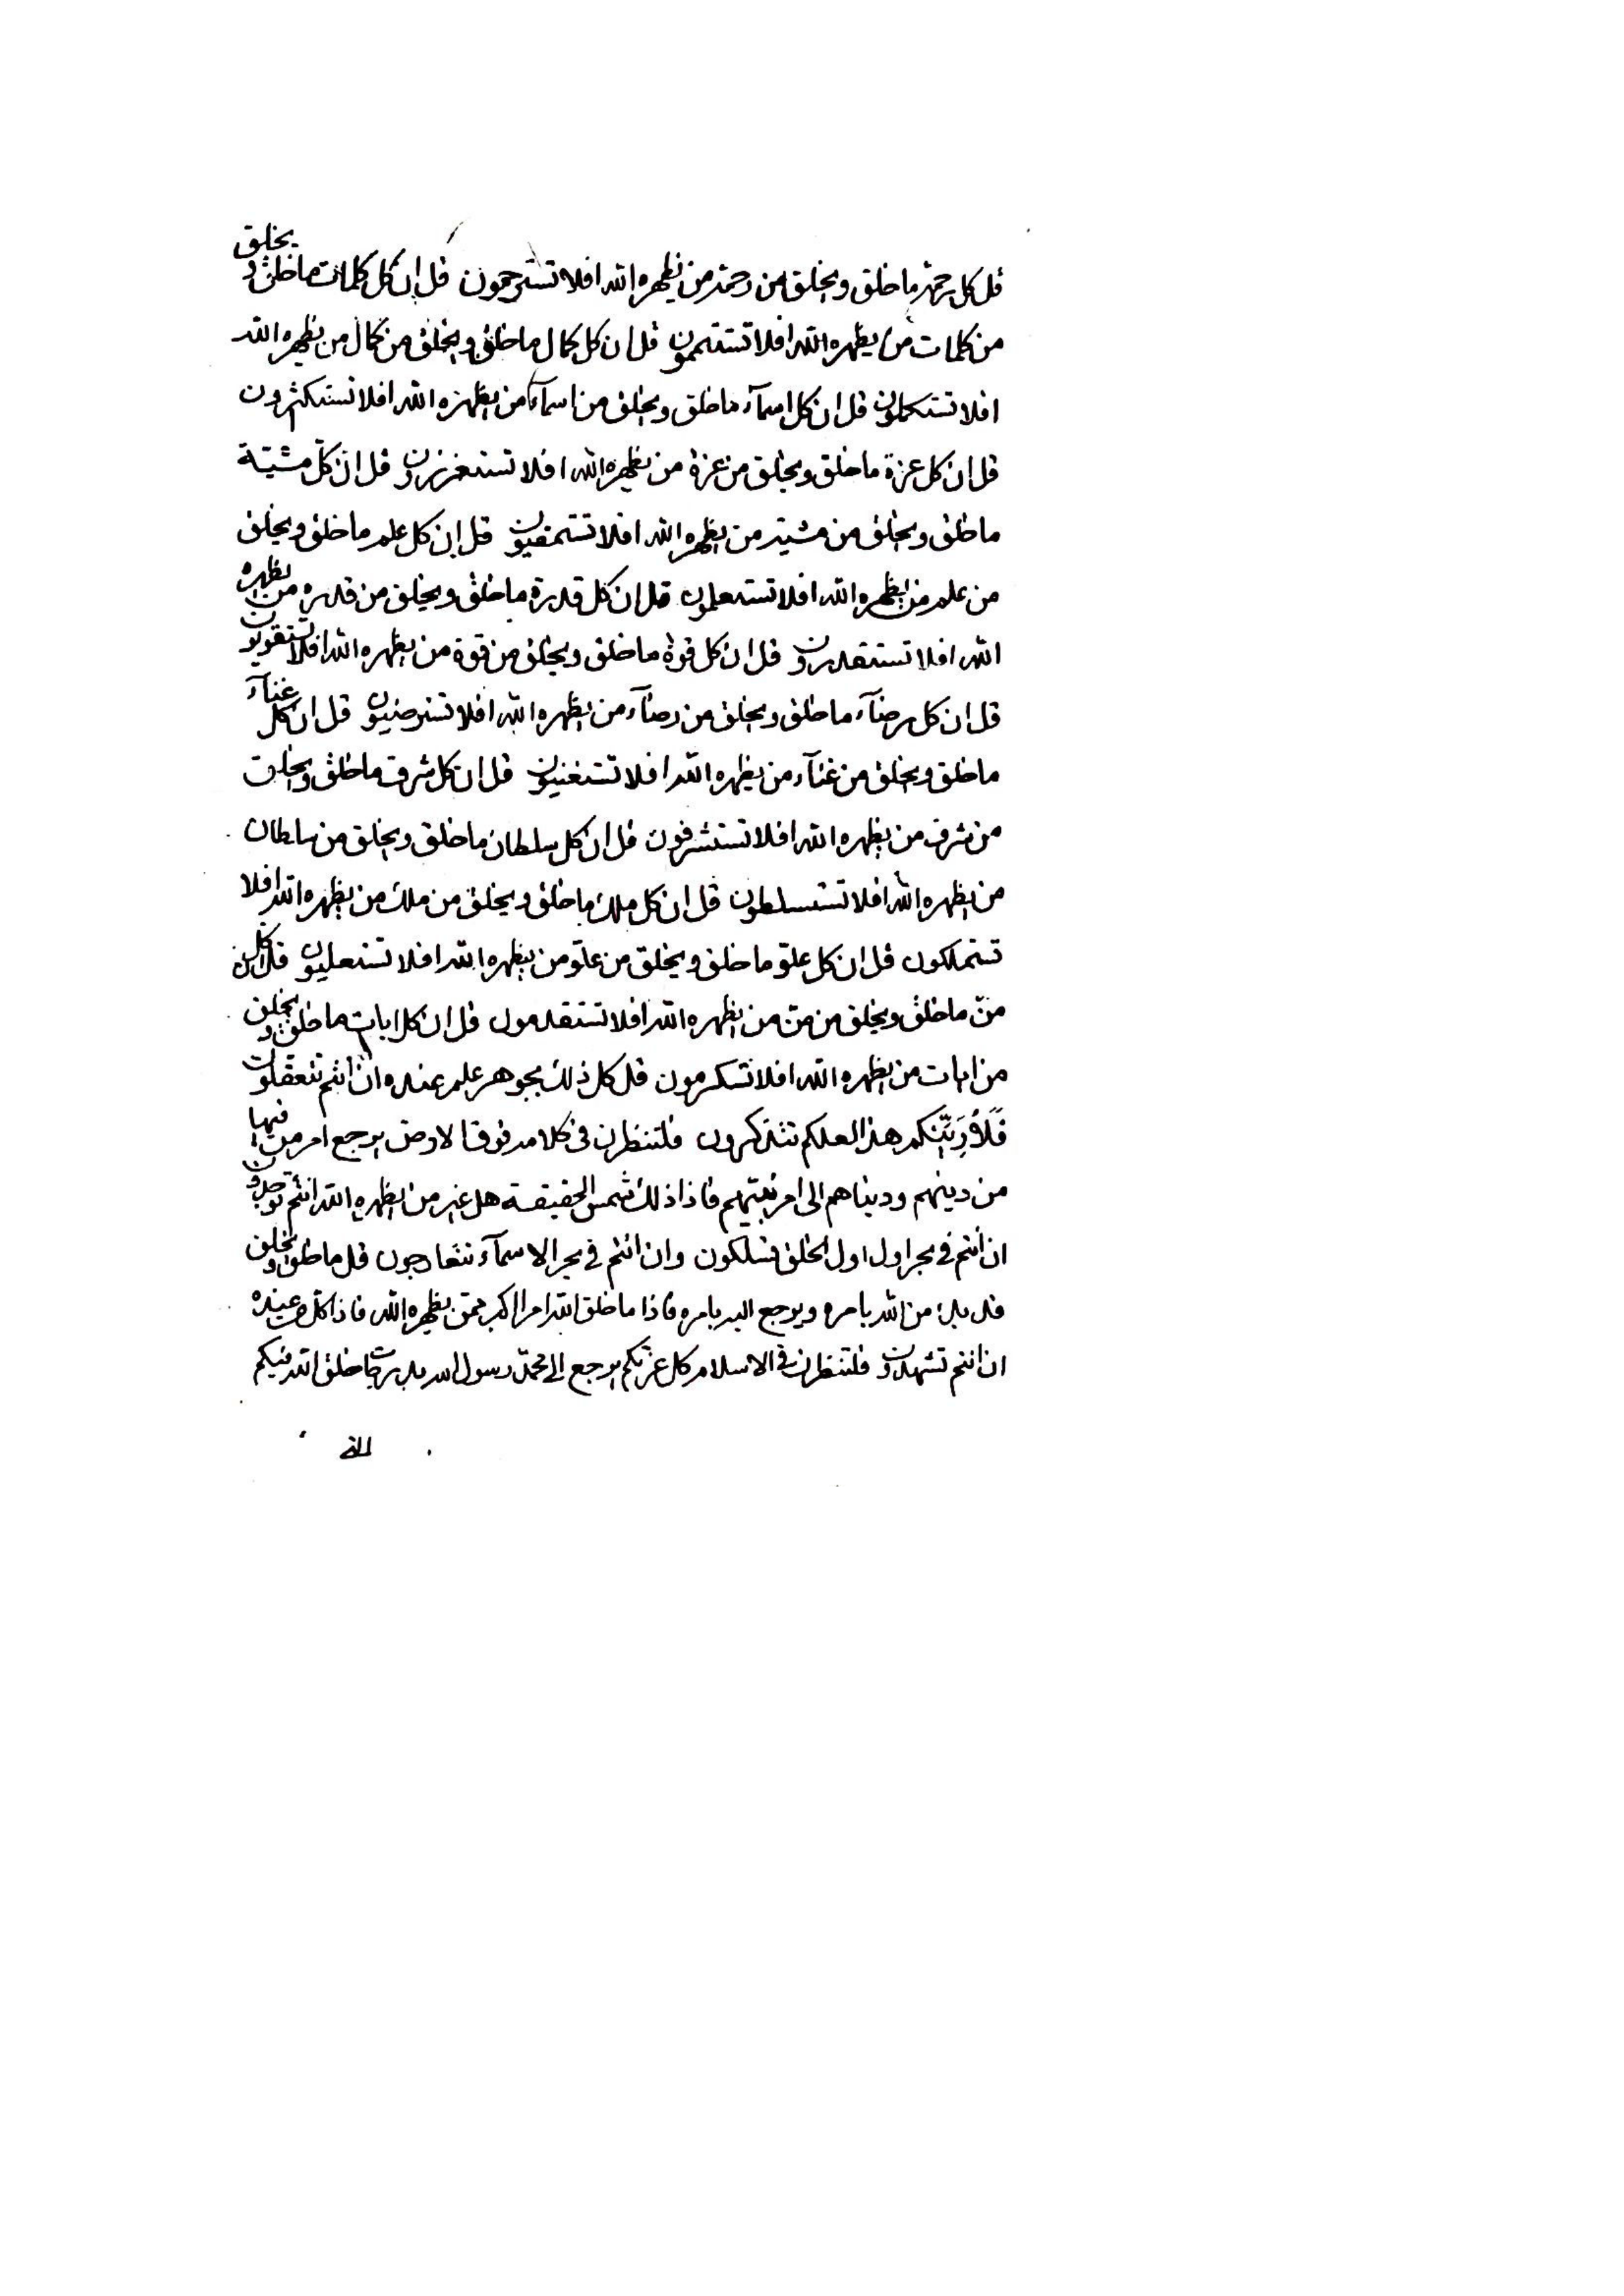 قل كل رحمة ما خلق ويخلق من رحمة من يظهره الله افلا تسترحمون قل ان كل كلمات ما خلق و يخلق
من كلمات من يظهره الله افلا تستتممون قل ان كل كمال ما خلق ويخلق من كمال من يظهره الله
افلا تستكملون قل ان كل اسمآء ما خلق ويخلق من اسمآء من يظهره الله افلا تستكثرون
قل ان كل عزة ما خلق ويخلق من عزة من يظهره الله افلا تستعززون قل ان كل مشية
ما خلق ويخلق من مشية من يظهره الله افلا قل ان كل علم ما خلق ويخلق
من علم من يظهره الله افلا تستعلمون قل ان كل قدرة ما خلق ويخلق من قدرة من يظهره
الله افلا تستقدرون قل ان كل قوة ما خلق ويخلق من قوة من يظهره الله افلا تستقويون
قل ان كل رضآء ما خلق ويخلق من رضآء من يظهره الله افلا تسترضيون قل ان كل غنآء
ما خلق ويخلق من غنآء من يظهره الله افلا تستغنيون قل ان كل شرف ما خلق ويخلق
من شرف من يظهره الله افلا تستشرفون قل ان كل سلطان ما خلق ويخلق من سلطان
من يظهره الله افلا تستسلطون قل ان كل ملك ما خلق ويخلق من ملك من يظهره الله افلا
تستملكون قل ان كل علو ما خلق ويخلق من علو من يظهره الله افلا تستعليون قل ان كل
منّ ما خلق ويخلق من منّ من يظهره الله افلا تستقدمون قل ان كل ايات ما خلق و يخلق
من ايات من يظهره الله افلا تسكرمون قل كل ذلك بجوهر علم عنده ان انتم تتعقلون
هذا لعلكم تتذكرون فلتنظرن في كلامه فوق الارض يرجع امر من فيها
من دينهم ودنياهم الى امر نبيهم فاذا ذلك شمس الحقيقة هل غير من يظهره الله انتم توجدون
ان انتم في بحر اول اول الخلق تسلكون وان انتم في بحر الاسمآء تتعارجون قل ما خلق ويخلق
قد بدء من الله بامره ويرجع اليه بامره فاذا ما خلق الله امرا اكبر عمن يظهره الله فاذا كل عبيده
ان انتم تشهدون فلتنظرن في الاسلام كل عزكم يرجع الى محمد رسول الله ما خلق الله فيكم